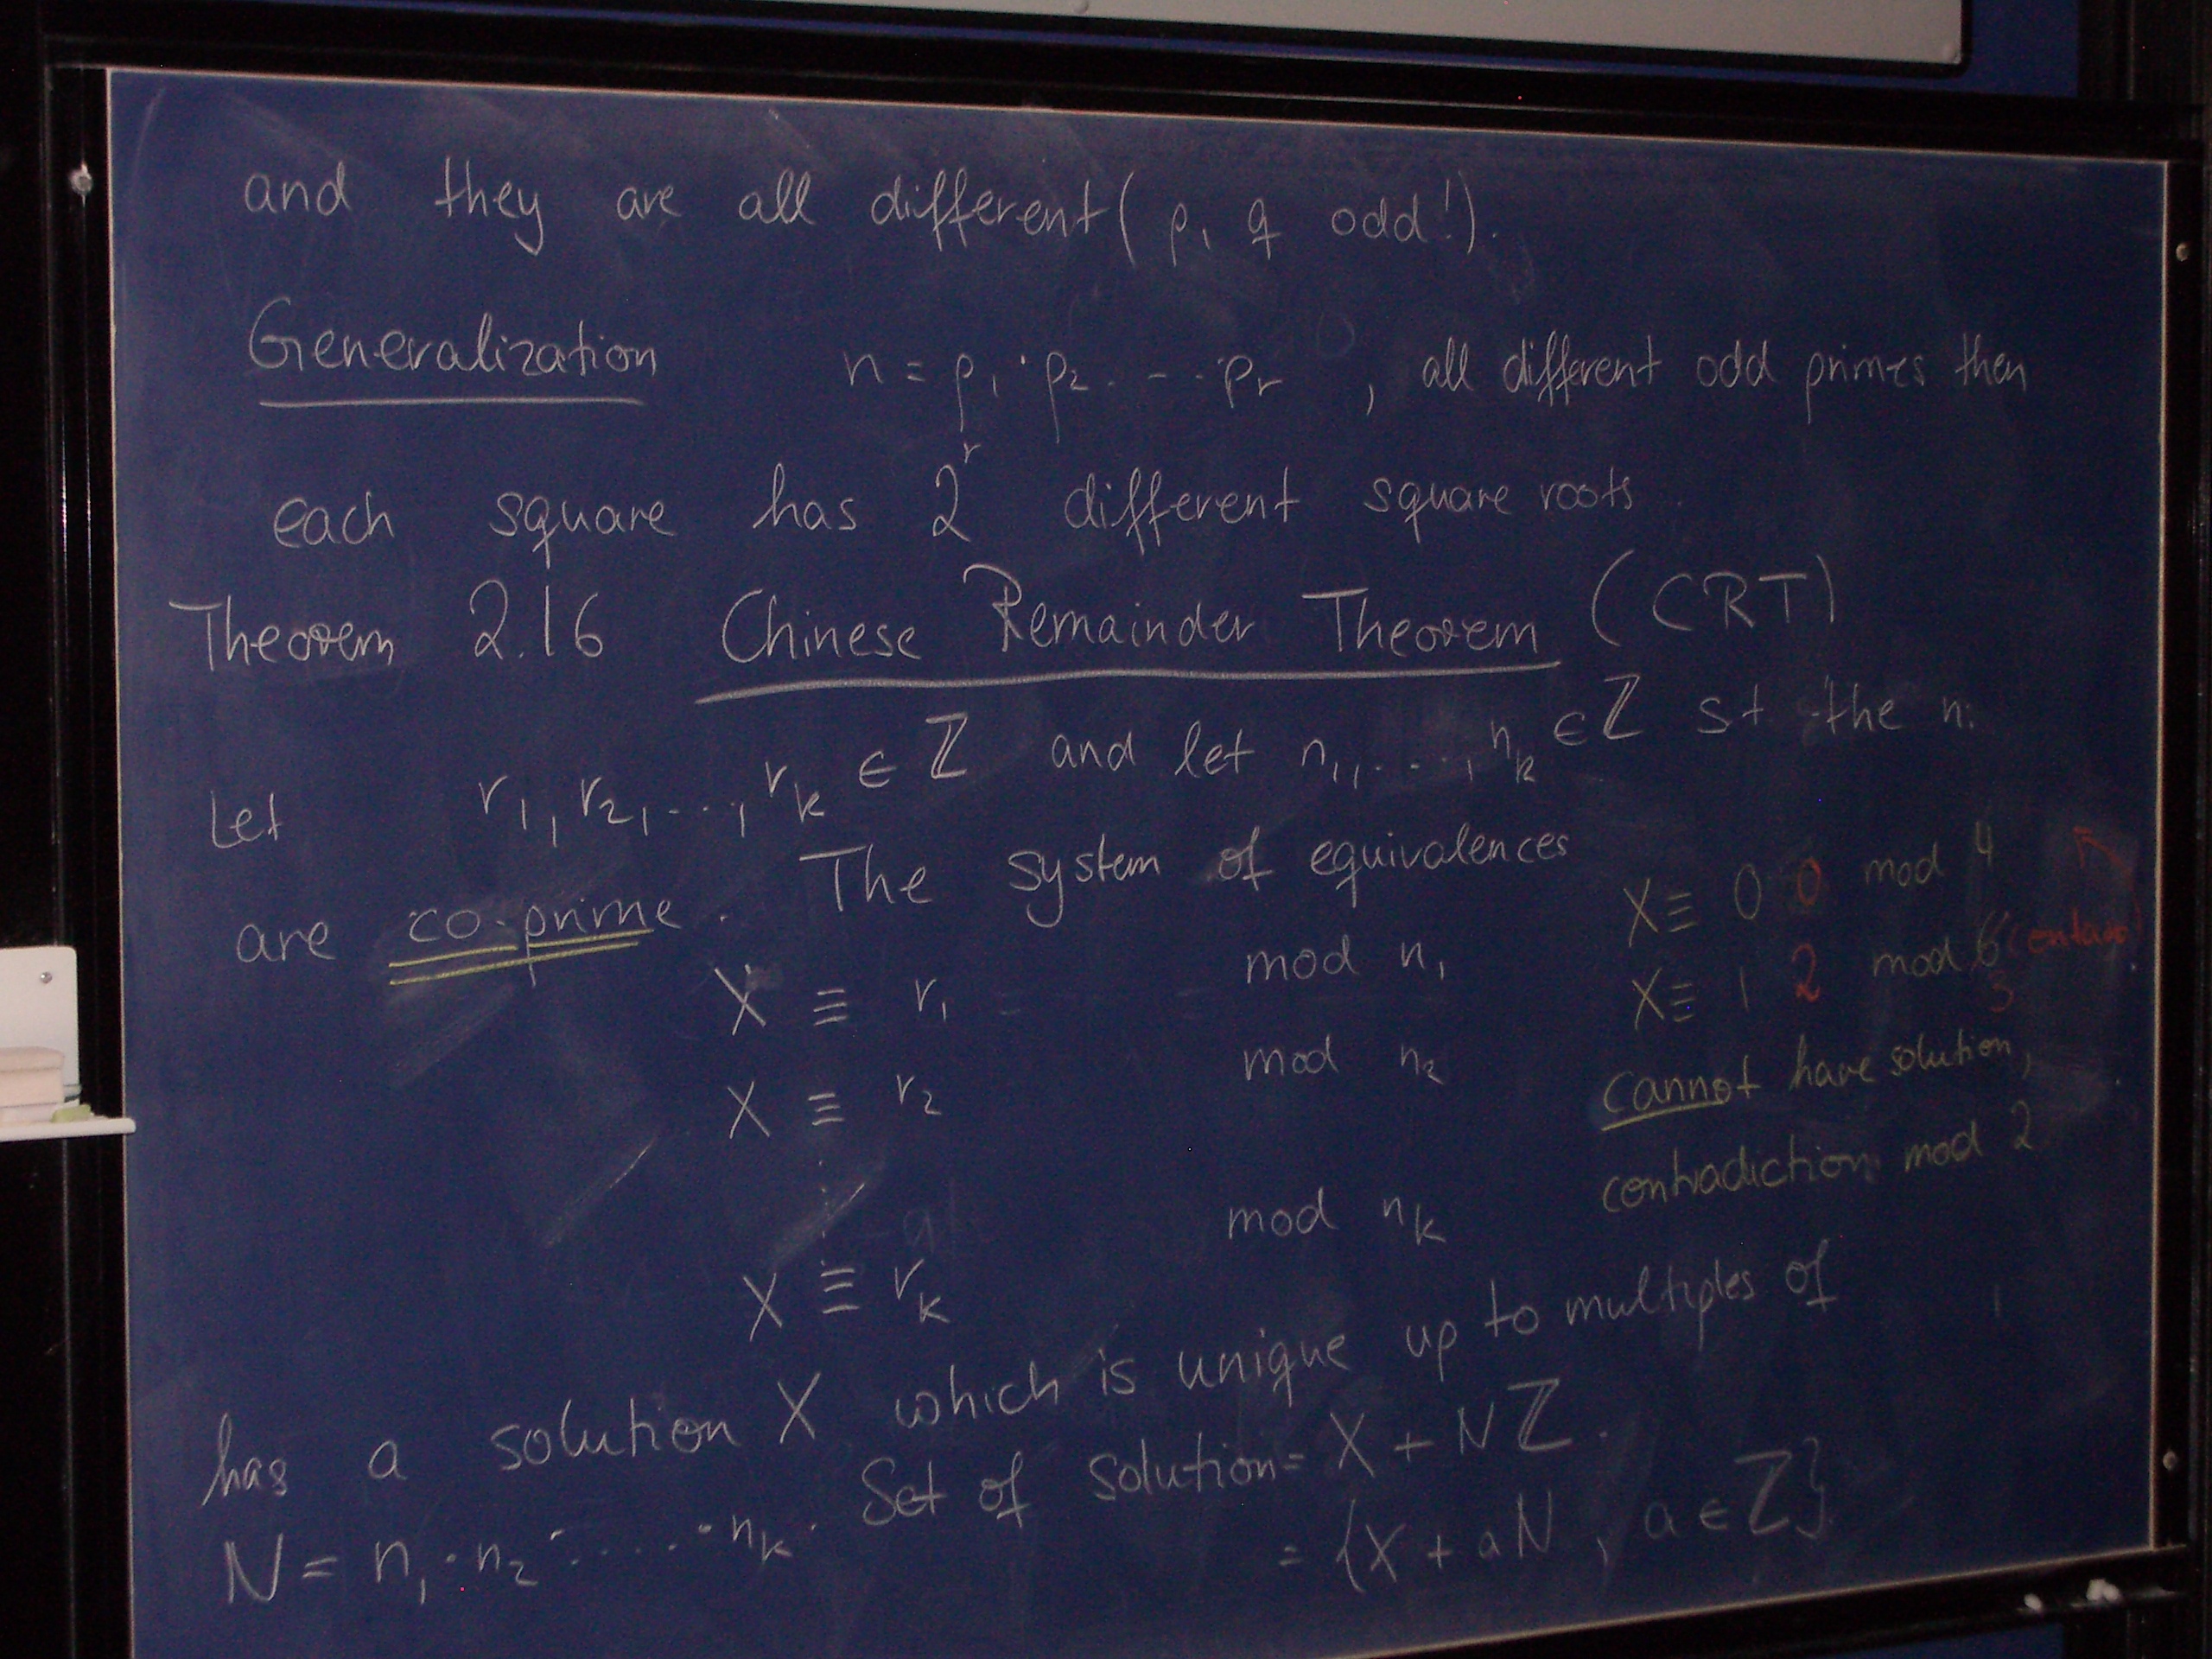 and they are all different (p, q odd!).
Generalization n = p₁ · p₂ · - - · pᵣ , all different odd primes then
each square has 2ʳ different square roots
Theorem 2.16 Chinese Remainder Theorem (CRT)
Let r₁, r₂, ..., rₖ ∈ ℤ and let n₁, ..., nₖ ∈ ℤ st the nᵢ
are co-prime. The system of equivalences
X ≡ r₁ mod n₁
X ≡ r₂ mod n₂
⋮
X ≡ rₖ mod nₖ
X ≡ 0 0 mod 4
X ≡ 1 2 mod 6
cannot have solution,
contradiction mod 2
has a solution X which is unique up to multiples of
N = n₁ · n₂ · .... · nₖ. Set of solution = X + Nℤ.
= {X + aN, a ∈ ℤ}